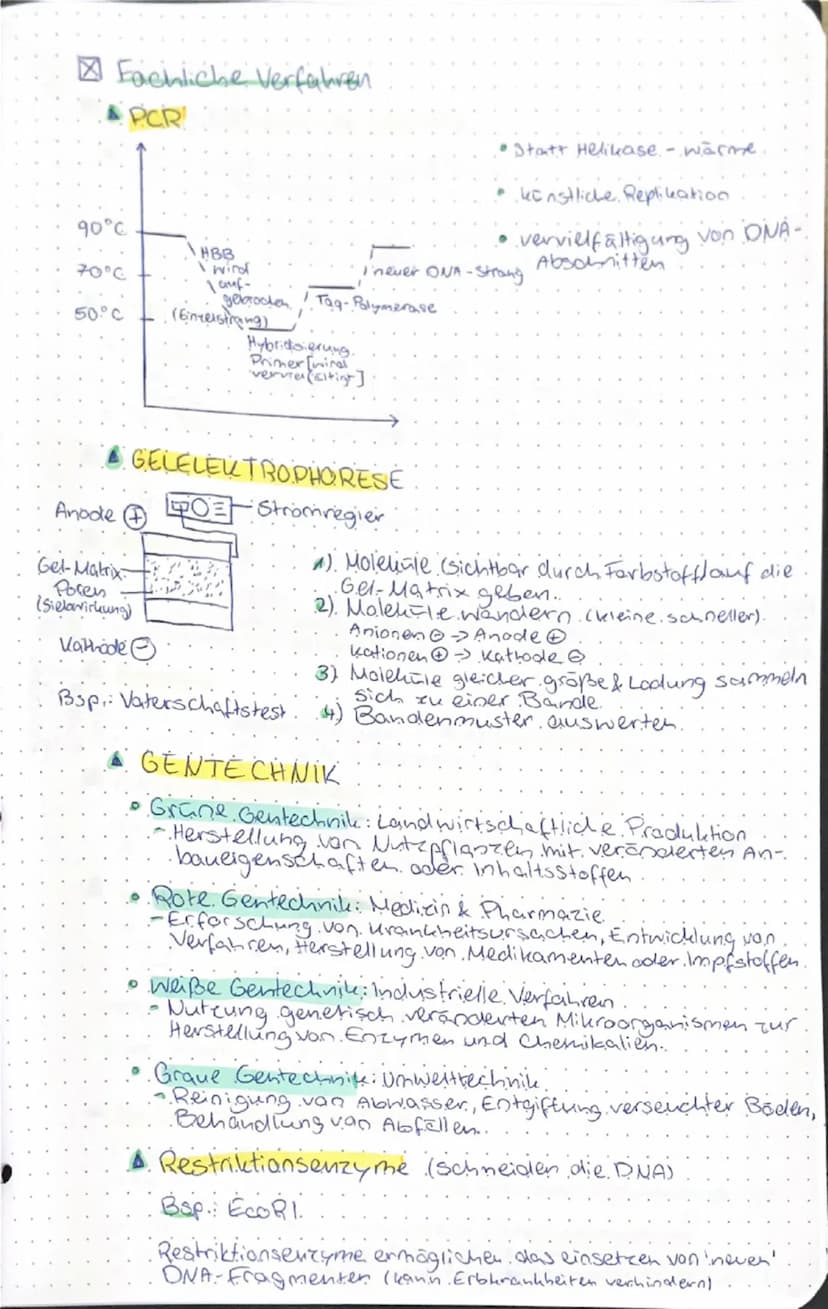 Fachliche Verfahren
PCR
• Statt Helikase - wärme
• künstliche Replikation
• vervielfältigung von DNA-
Abschnitten
90°C
70°C
50°C
HBB
wird
auf-
gebrochen
(Einzelstrang)
Hybridisierung
Primer [wird
vervielfältigt]
Taq-Polymerase
neuer DNA-Strang
GELELEKTROPHORESE
Anode ⊕
Stromregler
Gel-Matrix
Poren
(Siebwirkung)
Kathode ⊖
Bsp.: Vaterschaftstest
1) Moleküle (sichtbar durch Farbstoff) auf die
Gel-Matrix geben.
2) Moleküle wandern (kleine schneller).
Anionen ⊖ → Anode ⊕
Kationen ⊕ → Kathode ⊖
3) Moleküle gleicher größe & Ladung sammeln
sich zu einer Bande.
4) Bandenmuster auswerten.
GENTECHNIK
• Grüne Gentechnik: Landwirtschaftliche Produktion
- Herstellung von Nutzpflanzen mit veränderten An-
baueigenschaften oder Inhaltsstoffen
• Rote Gentechnik: Medizin & Pharmazie
- Erforschung von Krankheitsursachen, Entwicklung von
Verfahren, Herstellung von Medikamenten oder Impfstoffen.
• Weiße Gentechnik: Industrielle Verfahren
- Nutzung genetisch veränderten Mikroorganismen zur
Herstellung von Enzymen und Chemikalien.
• Graue Gentechnik: Umwelttechnik
- Reinigung von Abwasser, Entgiftung verseuchter Böden,
Behandlung von Abfällen.
Restriktionsenzyme (schneiden die DNA)
Bsp.: EcoRI
Restriktionsenzyme ermöglichen das einsetzen von 'neuen'
DNA-Fragmenten (kann Erbkrankheiten verhindern)